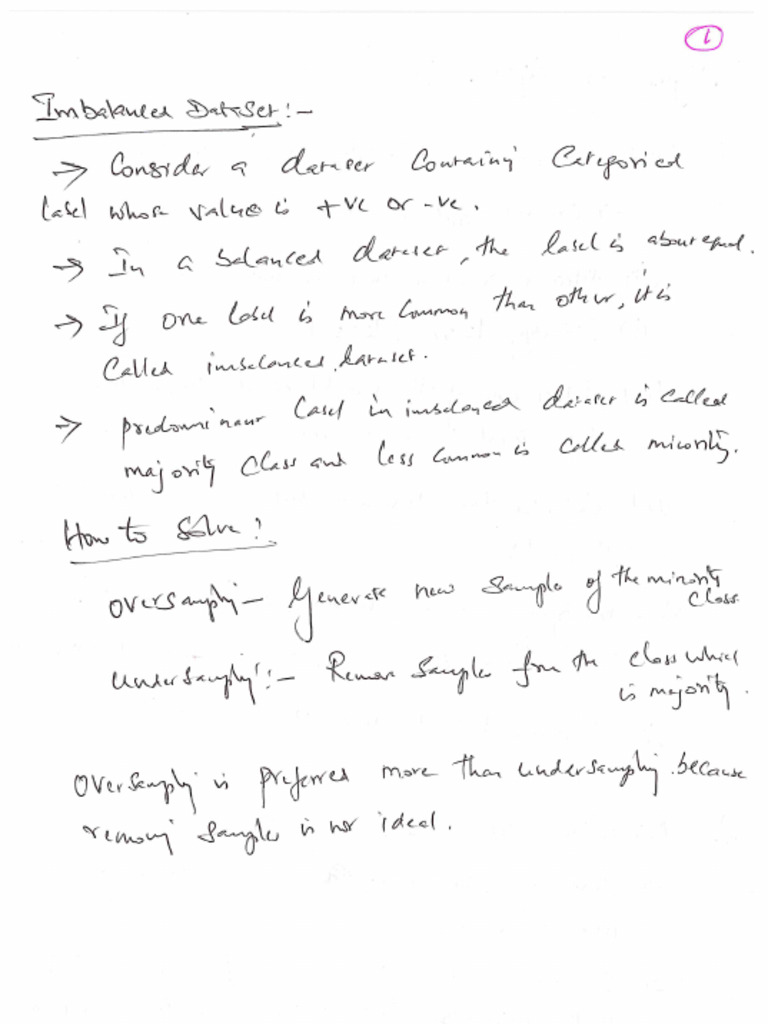 1
Imbalanced Dataset:-
→ Consider a dataset containing Categorical
label whose value is +ve or -ve.
→ In a balanced dataset, the label is about equal.
→ If one label is more common than other, it is
called imbalanced dataset.
→ predominant label in imbalanced dataset is called
majority class and less common is called minority.
How to solve?
Oversampling - Generate new sample of the minority
class.
Undersampling:- Remove samples from the class which
is majority.
Oversampling is preferred more than undersampling because
removing samples is not ideal.